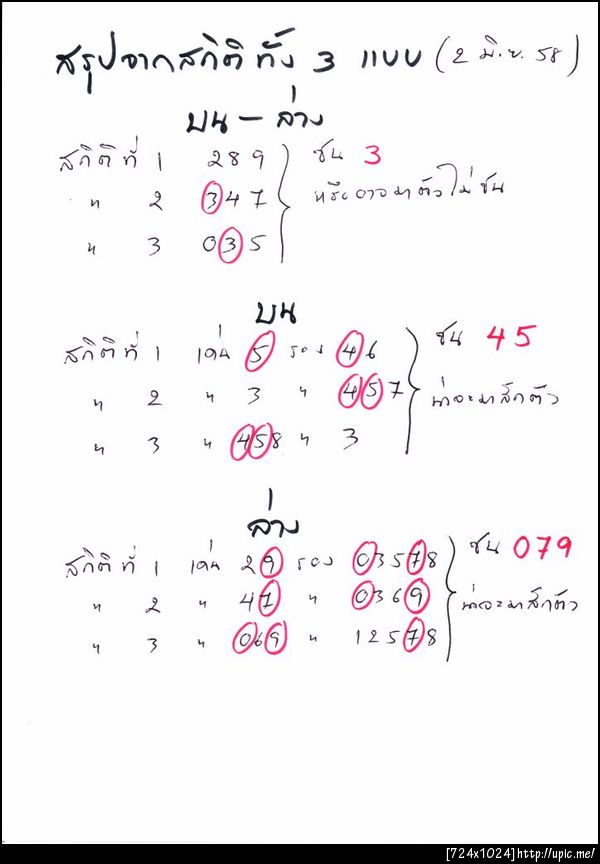 สรุปจากสถิติ ทั้ง 3 แบบ (2 มิ.ย. 58)
บน - ล่าง
สถิติที่ 1 289 ชน 3
" 2 347 หรืออาจมาตัวไม่ชน
" 3 035
บน
สถิติที่ 1 เด่น 5 รอง 46 ชน 45
" 2 " 3 " 457 น่าจะมาสักตัว
" 3 " 458 " 3
ล่าง
สถิติที่ 1 เด่น 29 รอง 03578 ชน 079
" 2 " 47 " 0369 น่าจะมาสักตัว
" 3 " 069 " 12578
[724x1024]http://upic.me/